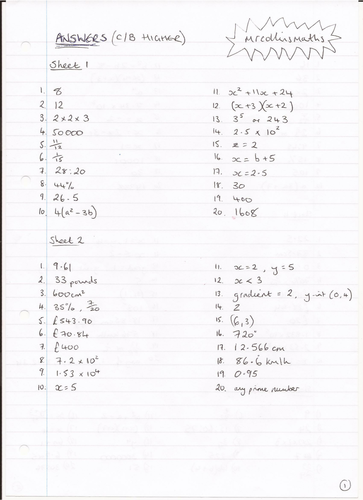 ANSWERS (C/B HIGHER)
mrcollinsmaths
Sheet 1
1. 8
2. 12
3. 2 x 2 x 3
4. 50000
5. 11/15
6. 1/15
7. 28:20
8. 44%
9. 26.5
10. 4(a² - 3b)
11. x² + 11x + 24
12. (x+3)(x+2)
13. 3⁵ or 243
14. 2.5 x 10²
15. x = 2
16. x = b+5
17. x = 2.5
18. 30
19. 400
20. 1608
Sheet 2
1. 9.61
2. 33 pounds
3. 600cm³
4. 35%, 7/20
5. £543.90
6. £70.84
7. £400
8. 7.2 x 10²
9. 1.53 x 10⁴
10. x = 5
11. x = 2, y = 5
12. x < 3
13. gradient = 2, y-int (0,4)
14. 2
15. (6,3)
16. 720°
17. 12.566 cm
18. 86.6 km/h
19. 0.95
20. any prime number
1